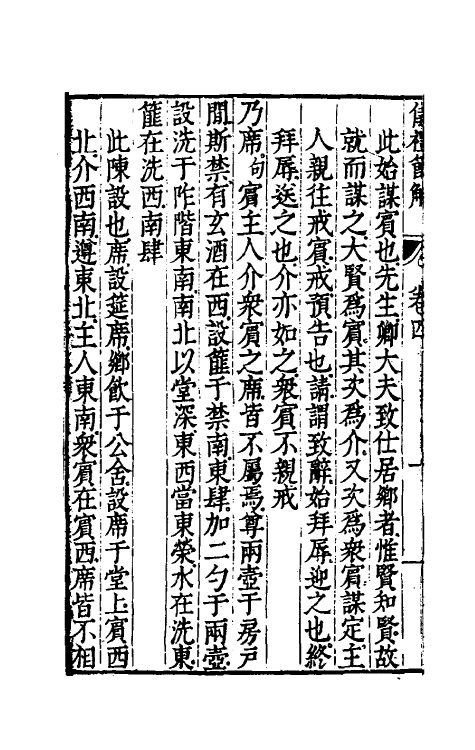 儀禮節解 卷四 一
此始謀賓也先生鄉大夫致仕居鄉者惟賢知賢故
就而謀之大賢爲賓其次爲介又次爲衆賓謀定主
人親往戒賓戒預告也請謂致辭始拜辱迎之也終
拜辱送之也介亦如之衆賓不親戒
乃席句賓主人介衆賓之席皆不屬焉尊兩壺于房戶
間斯禁有玄酒在西設篚于禁南東肆加二勺于兩壺
設洗于阼階東南南北以堂深東西當東榮水在洗東
篚在洗西南肆
此陳設也席設筵席鄉飲于公舍設席于堂上賓西
北介西南遵東北主人東南衆賓在賓西席皆不相